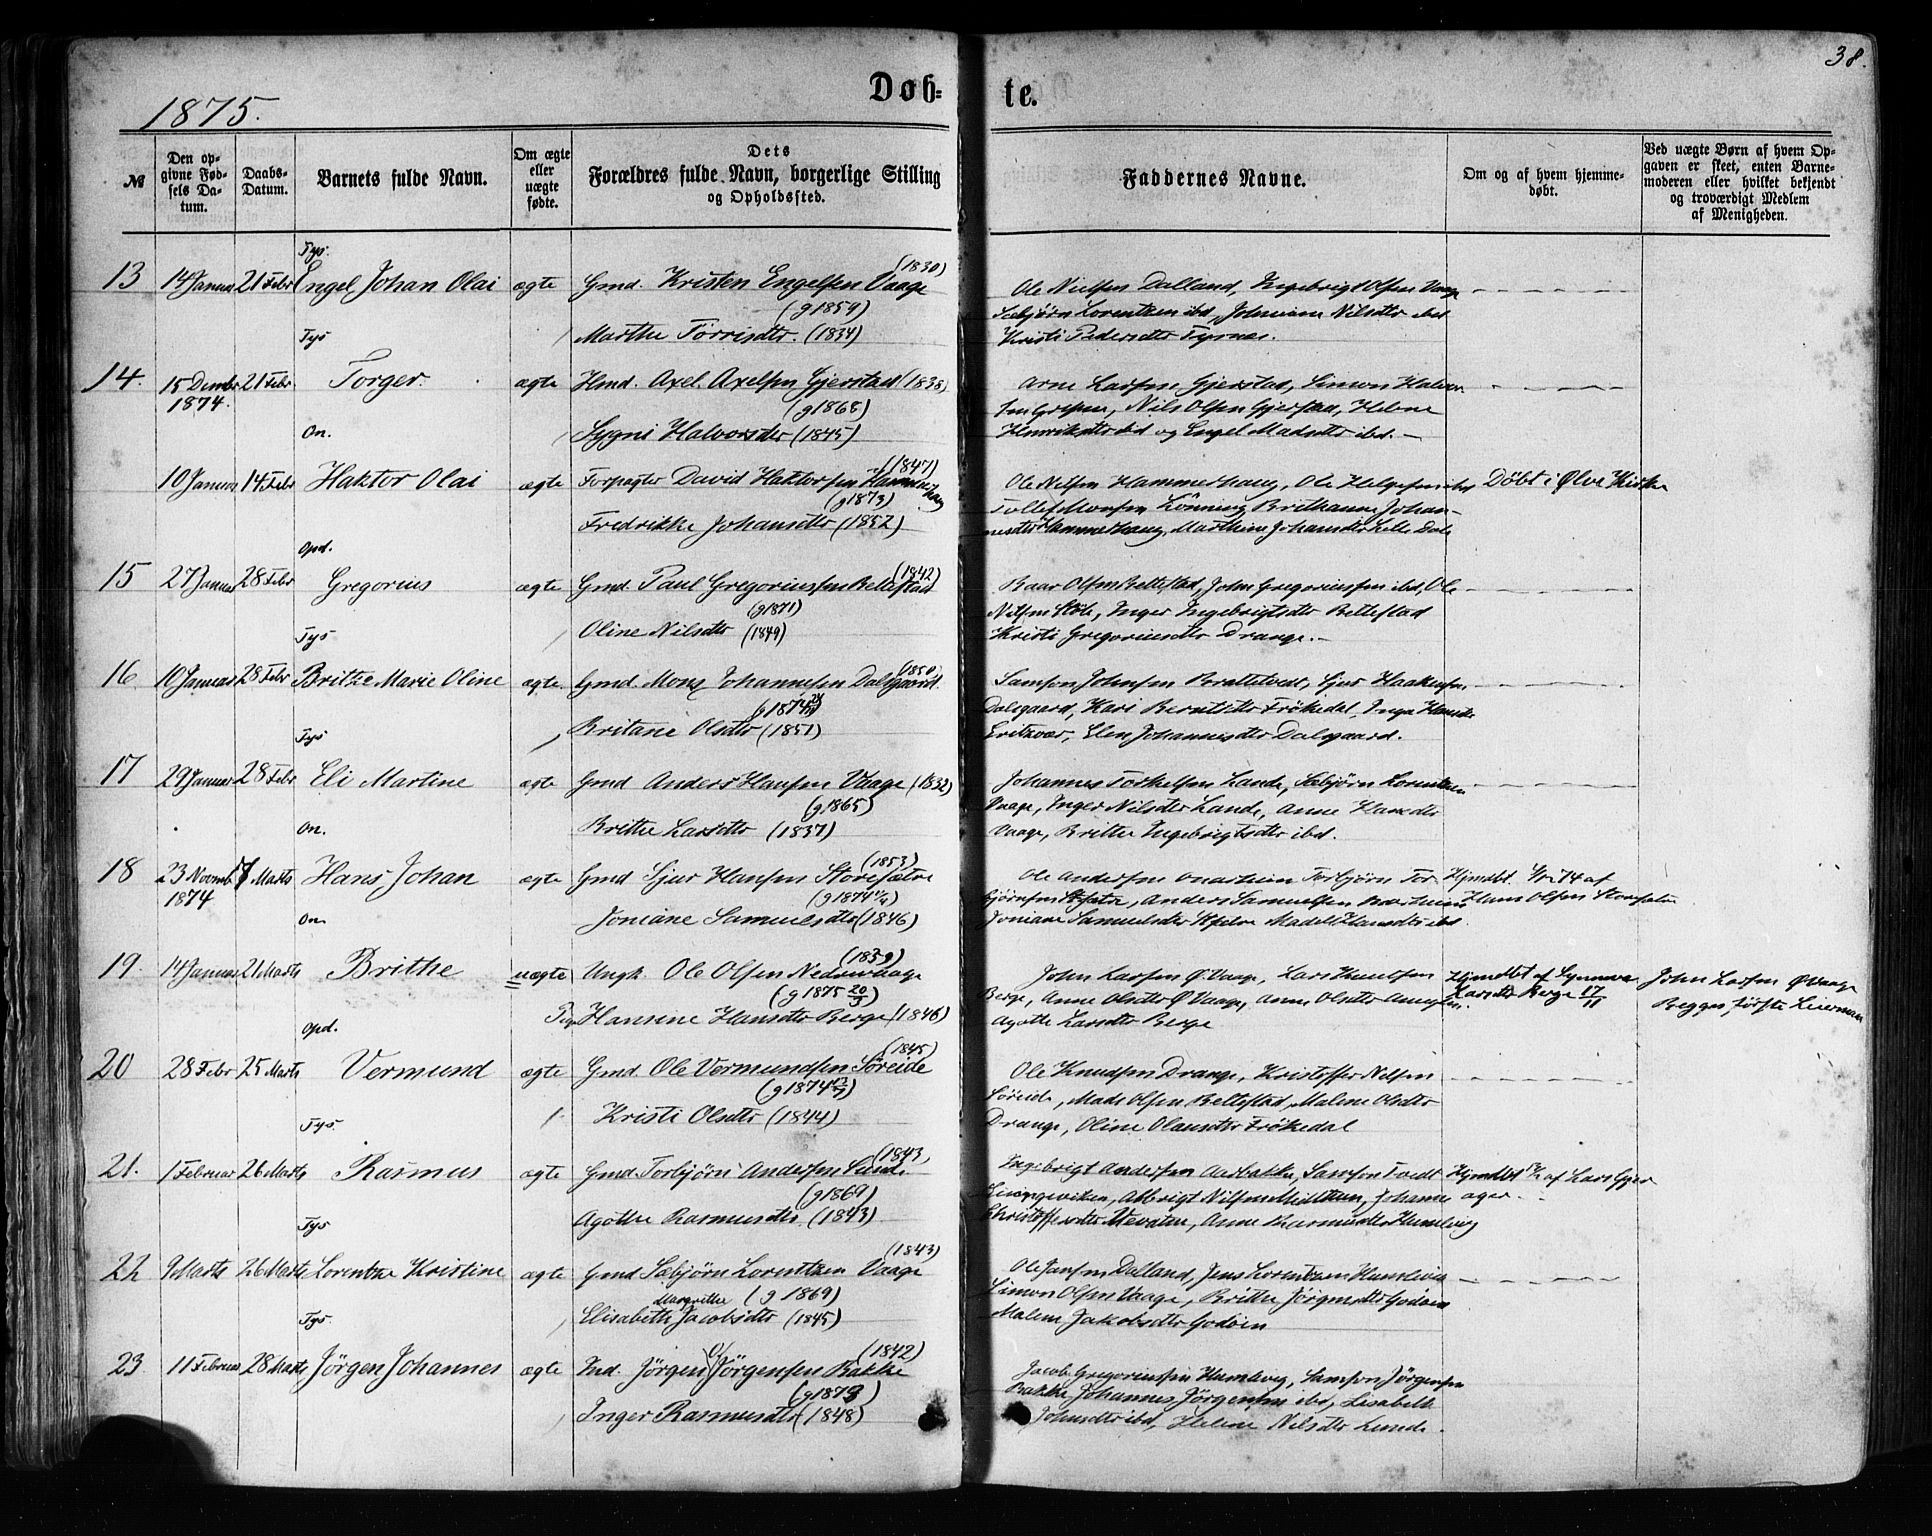 38.
1875.
Døb-
te.
№
Den op-
givne Fød-
sels Da-
tum.
Daabs-
Datum.
Barnets fulde Navn.
Om ægte
eller
uægte
fødte.
Dets
Forældres fulde Navn, borgerlige Stilling
og Opholdssted.
Faddernes Navne.
Om og af hvem hjemme-
døbt.
Ved uægte Børn af hvem Op-
gaven er skeet, enten Barne-
moderen eller hvilket bekjendt
og troværdigt Medlem
af Menigheden.
Tys.
(1830)
13 14 Januar 21 Febr Engel Johan Olai ægte Gmd. Kristen Engelsen Vaage
(g 1859)
Marthe Tørrisdtr. (1834)
Ole Nielsen Dalland, Ingebrigt Olsen Vaage
Sæbjørn Lorentzen ibd, Johanne Nilsdtr ibd
Kristi Pedersdtr Tysnes.
Tys
14. 15 Decmbr 21 Febr Torger. ægte Hmd. Axel Axelsen Gjerstad (1838)
1874.
(g 1868)
Sygni Halvorsdtr (1845)
Arne Larsen Gjerstad, Simon Halvor-
sen, Nils Olsen Gjerstad, Helene
Henriksdtr ibd og Engel Madsdtr ibd.
On.
(1847)
10 Januar 14 Febr Haktor Olai ægte Forpagter David Haktorsen Hammerhaug
(g 1873)
Fredrikke Johansdtr (1852)
Ole Nilsen Hammerhaug, Ole Helgesen ibd
Tollef Monsen Lønning, Brithanna Johan-
nesdtr Hammerhaug, Marthine Johansdtr Lille Dale
Døbt i Ølve Kirke
Opd.
(1842)
15 27 Januar 28 Febr Gregorius ægte Gmd. Paul Gregoriussen Bellestad
(g 1871)
Oline Nilsdtr (1849)
Baar Olsen Bellestad, John Gregoriussen ibd, Ole
Nilsen Støle, Inger Ingebrigtsdtr Bellestad
Kristi Gregoriusdtr Drange.
Tys
(1850)
16. 10 Januar 28 Febr Britze Marie Oline ægte. Gmd. Mons Johannesen Dalsgaard.
(g 1874)
Britanie Olsdtr (1851)
Samson Johnsen Brattetvedt, Sjur Haakensen
Dalsgaard, Kari Berntsdtr Frøkedal, Inga Hansdtr
Eritzvær, Elen Johannesdtr Dalsgaard.
Tys
17 29 Januar 28 Febr Eli Martine ægte Gmd Anders Hansen Vaage (1832)
(g 1865)
Brithe Larsdtr (1837)
Johannes Torkelsen Lande, Sæbjørn Lorentzen
Vaage, Inger Nilsdtr Lande, Anne Hansdtr
Vaage, Brithe Ingebrigtsdtr ibd.
On.
(1853)
18 23 Novmb 7 Marts Hans Johan ægte Gmd Sjur Hansen Storesætre
1874
(g 1874)
Joniane Samuelsdtr (1846)
Ole Andersen Onarheim Torbjørn Tor-
bjørnsen, Anders Samuelsen
Joniane Samuelsdtr Madel Hansdtr ibd.
Hjmdbt. 74 af
Hans Olsen Storesætre
On.
(1859)
19. 14 Januar 21 Marts Brithe uægte Ungk. Ole Olsen Nedrevaage
(g 1875 20/5)
Pige Hansine Hansdtr Berge (1846)
John Larsen Ø. Vaage, Lars Knutsen
Berge, Anne Olsdtr Ø Vaage, Anne Olsdtr
Agathe Larsdtr Berge
Hjmdbt af Synneva
Larsdtr Berge 17/11
John Larsen Ø Vaage
Begges første Leierm.
Opd.
(1845)
20 28 Febr 25 Marts Vermund ægte Gmd. Ole Vermundsen Søreide
(g 1874)
Kristi Olsdtr (1844)
Ole Knudsen Drange, Kristoffer Nilsen
Søreide, Mads Olsen Bellestad, Malene Olsdtr
Drange, Oline Olausdtr Frøkedal
Tys.
(1843)
21. 1 Februar 26 Marts Rasmus ægte Gmd. Torbjørn Andersen Lund.
(g 1869)
Agathe Rasmusdtr. (1843)
Ingebrigt Andersen Aadbakke, Samson Tvedt
Albrigt Nilsen, Johanne
Christoffersdtr, Anne Rasmusdtr Humlevig
Hjmdbt af Lars Gjer-
ager
Tys
(1843)
22 9 Marts 26 Marts Lorentze Kristine ægte Gmd Sæbjørn Lorentzen Vaage
Margrithe (g 1869)
Elisabeth Jacobsdtr (1845)
Ole Jansen Dalland, Jens Lorentzen Humlevig
Simon Olsen Vaage, Brithe Jørgensdtr Godøen
Malene Jakobsdtr Godøen
Tys.
(1842)
23 11 Februar 28 Marts Jørgen Johannes ægte Ind. Jørgen Jørgensen Bakke
(g 1873)
Inger Rasmusdtr (1848)
Jacob Gregoriussen Humlevig, Samson Jørgensen
Bakke, Johannes Jørgensen ibd, Lisabeth
Johnsdtr ibd, Helene Nilsdtr Lunde.